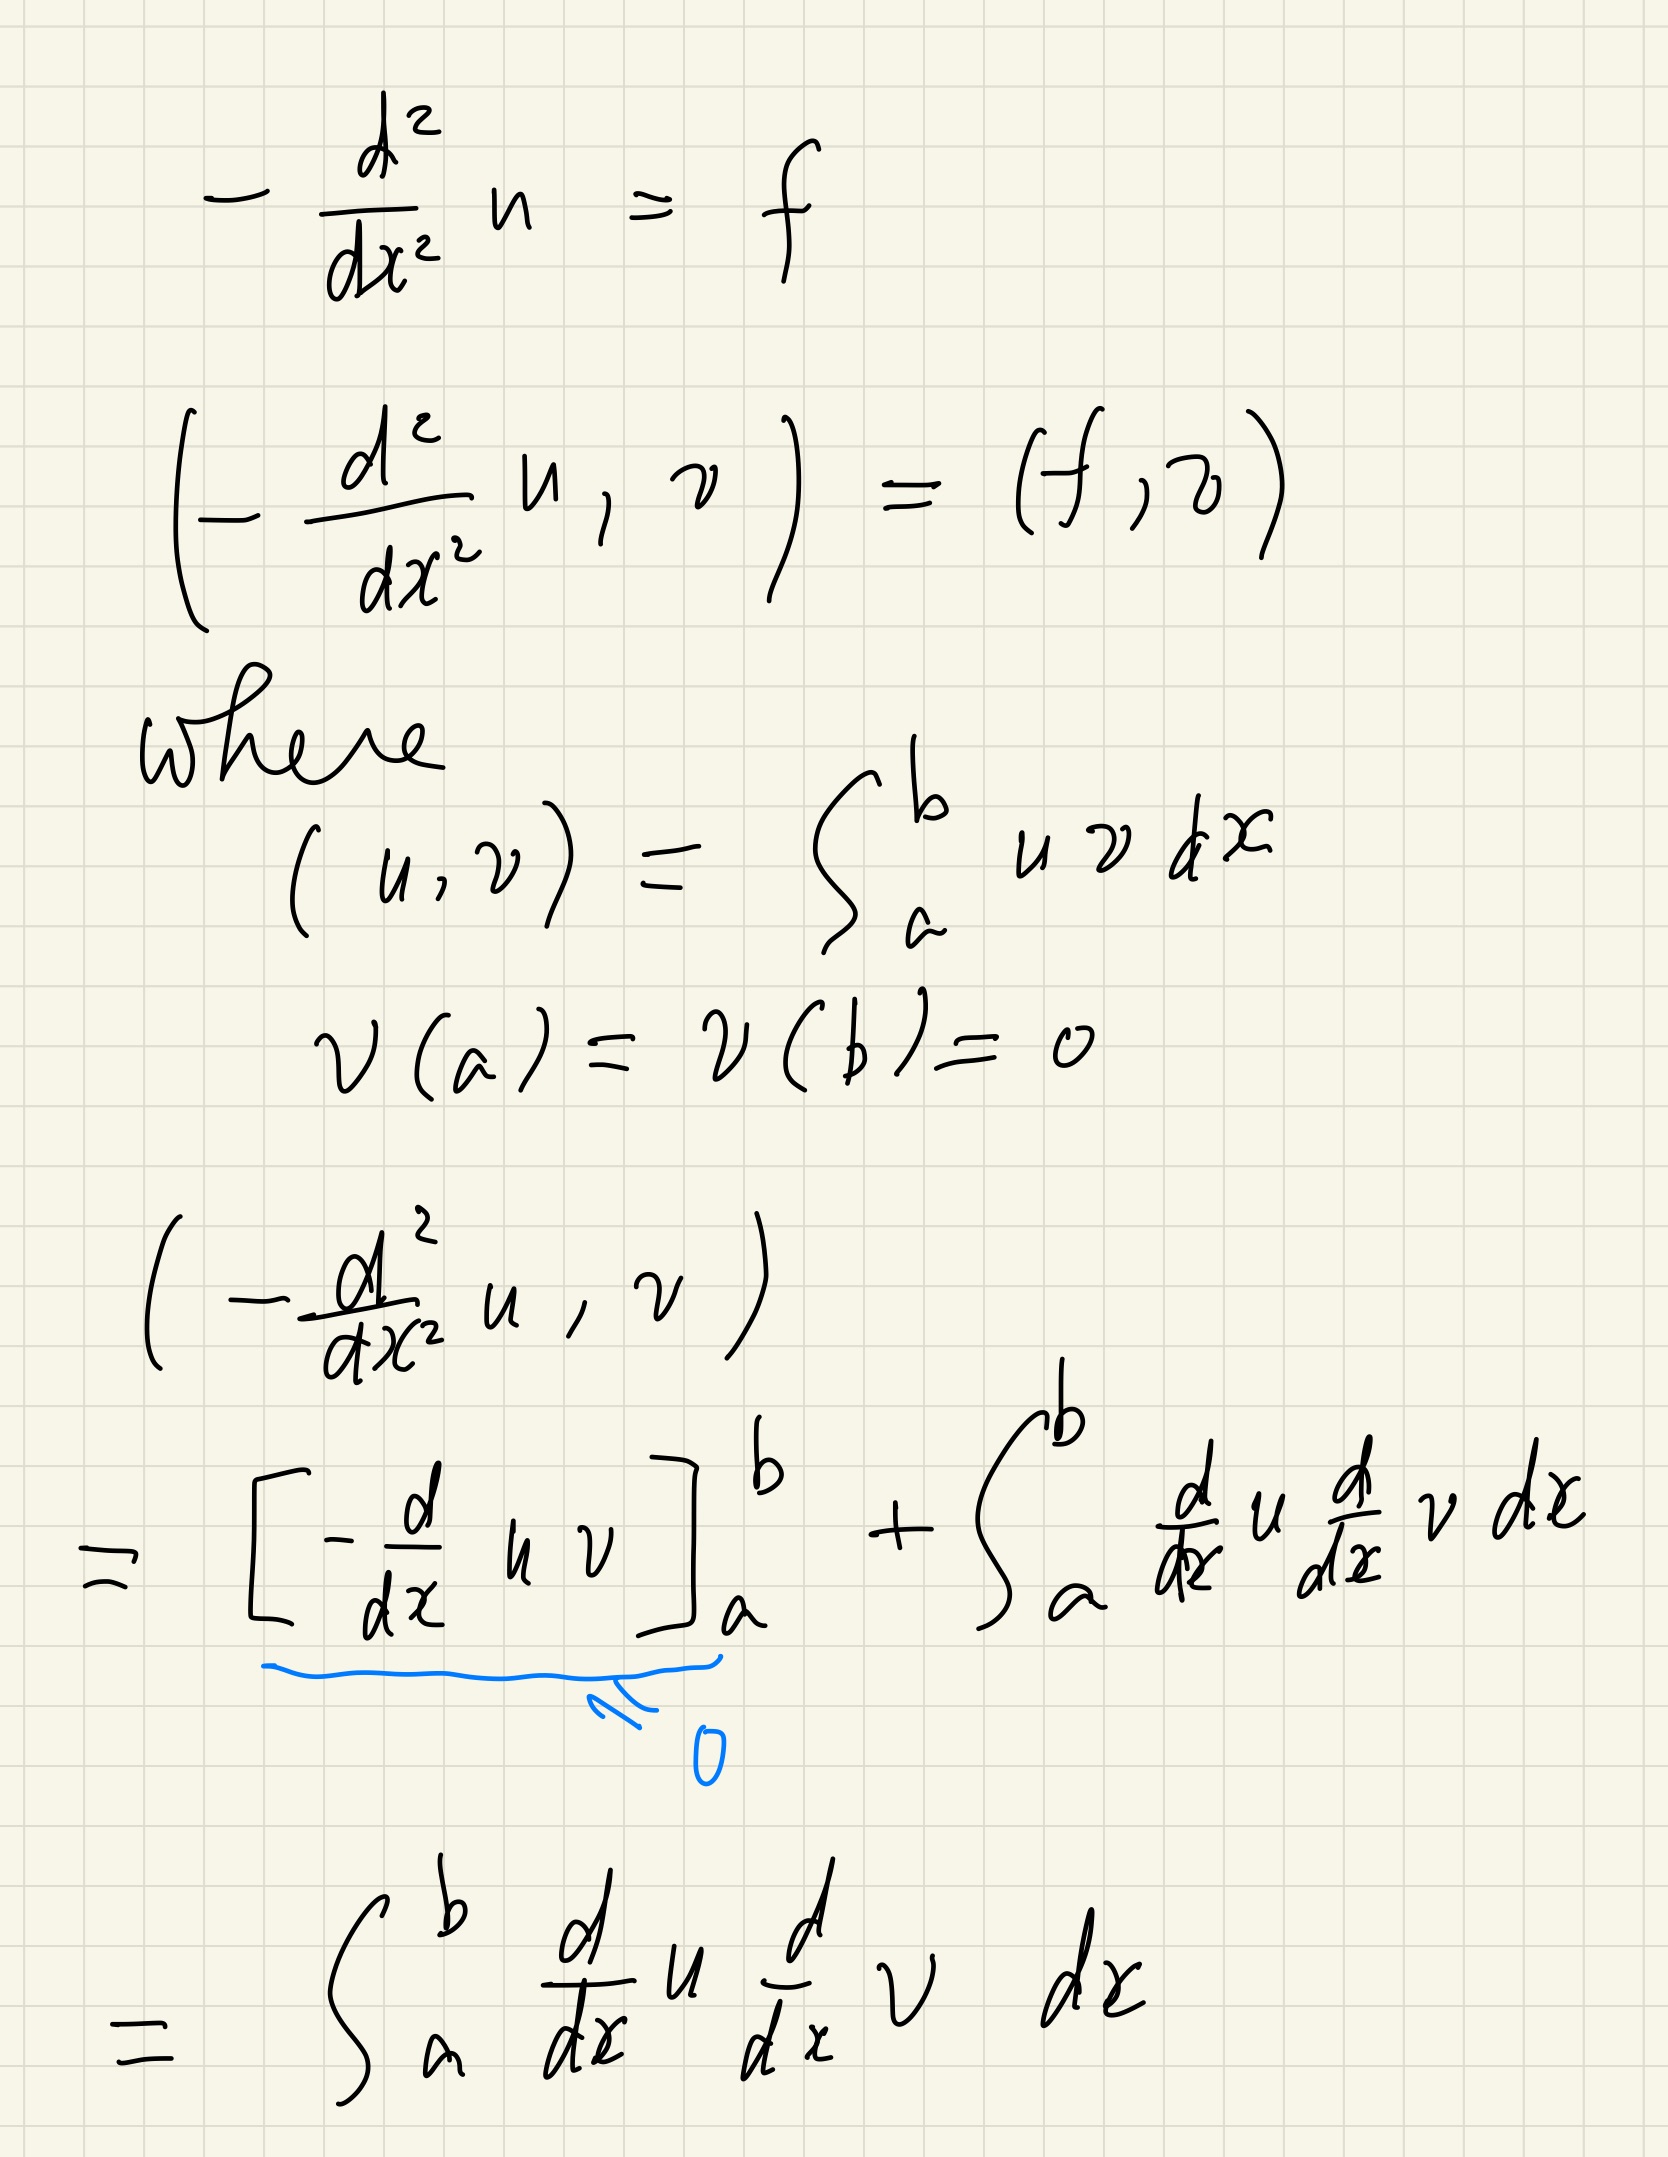 - d²/dx² u = f
( - d²/dx² u , v ) = (f , v)
where
( u , v ) = ∫_a^b u v dx
v(a) = v(b) = 0
( - d²/dx² u , v )
= [ - d/dx u v ]_a^b + ∫_a^b d/dx u d/dx v dx
0
= ∫_a^b d/dx u d/dx v dx